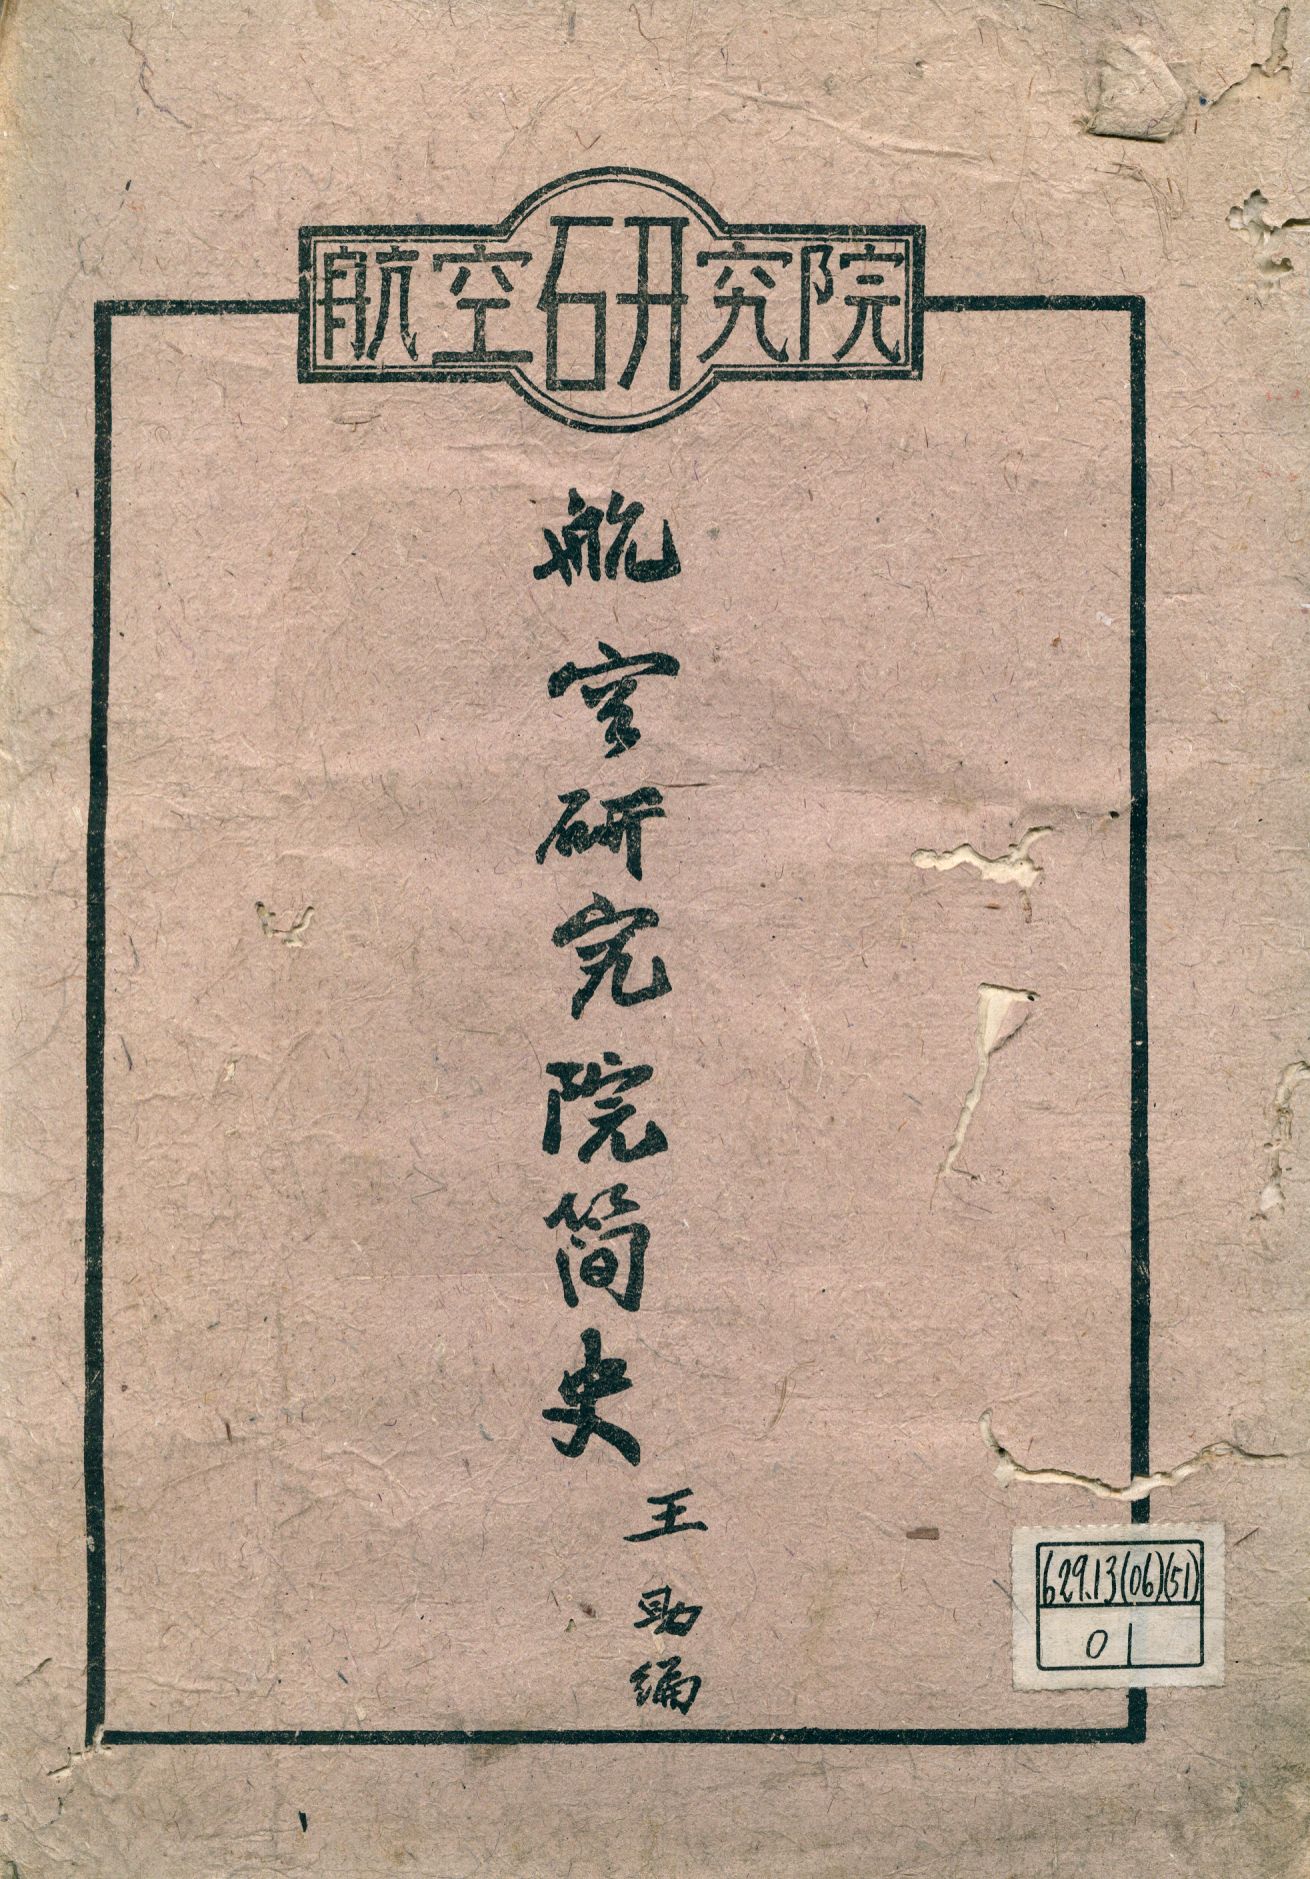 航空研究院
航空研究院简史
王助编
629.13(06)(51)
01